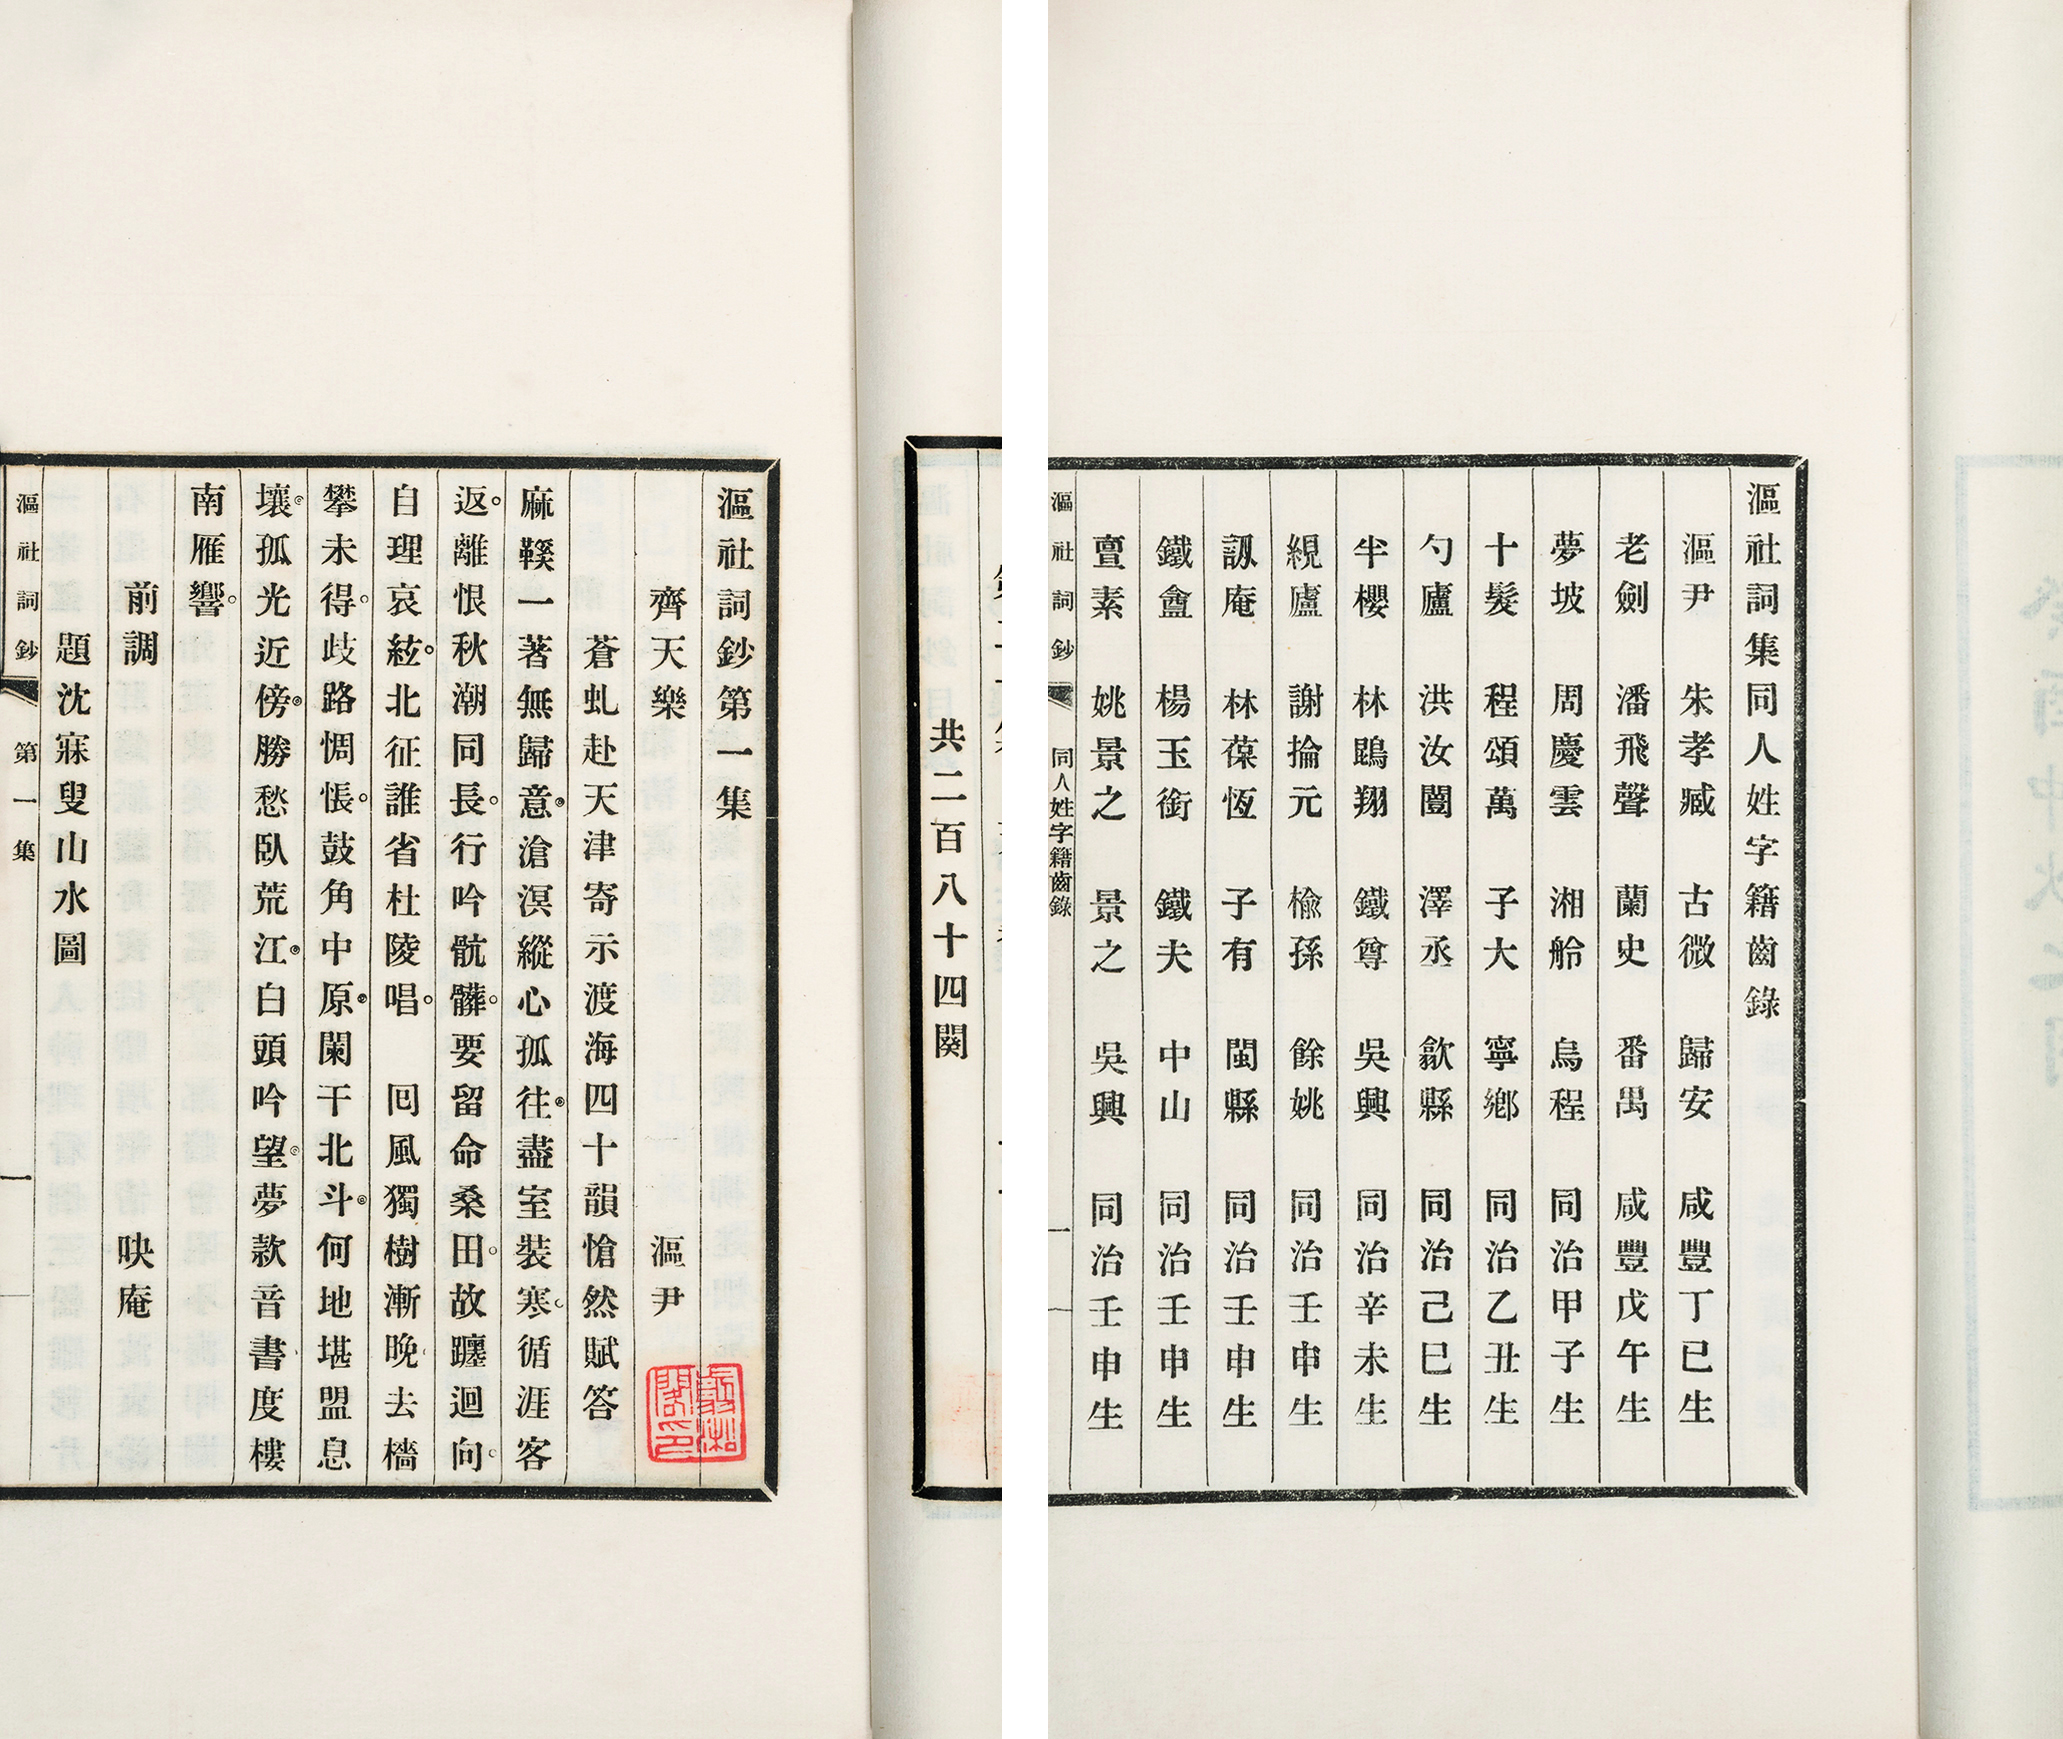 漚社詞集同人姓字籍齒錄
漚尹 朱孝臧 古微 歸安 咸豐丁巳生
老劍 潘飛聲 蘭史 番禺 咸豐戊午生
夢坡 周慶雲 湘舲 烏程 同治甲子生
十髮 程頌萬 子大 寧鄉 同治乙丑生
勺廬 洪汝闓 澤丞 歙縣 同治己巳生
半櫻 林鵾翔 鐵尊 吳興 同治辛未生
絸廬 謝掄元 楡孫 餘姚 同治壬申生
訒庵 林葆恆 子有 閩縣 同治壬申生
鐵盦 楊玉銜 鐵夫 中山 同治壬申生
亶素 姚景之 景之 吳興 同治壬申生
漚社詞鈔 同人姓字籍齒錄 一
共二百八十四闋
漚社詞鈔第一集
齊天樂 漚尹
蒼虬赴天津寄示渡海四十韻愴然賦答
麻鞵一著無歸意滄溟縱心孤往盡室裝寒循涯客
返離恨秋潮同長行吟骯髒要留命桑田故躔迴向
自理哀絃北征誰省杜陵唱 回風獨樹漸晚去檣
攀未得歧路惆悵鼓角中原闌干北斗何地堪盟息
壤孤光近傍勝愁臥荒江白頭吟望夢款音書度樓
南雁響
前調 映庵
題沈寐叟山水圖
漚社詞鈔 第一集 一